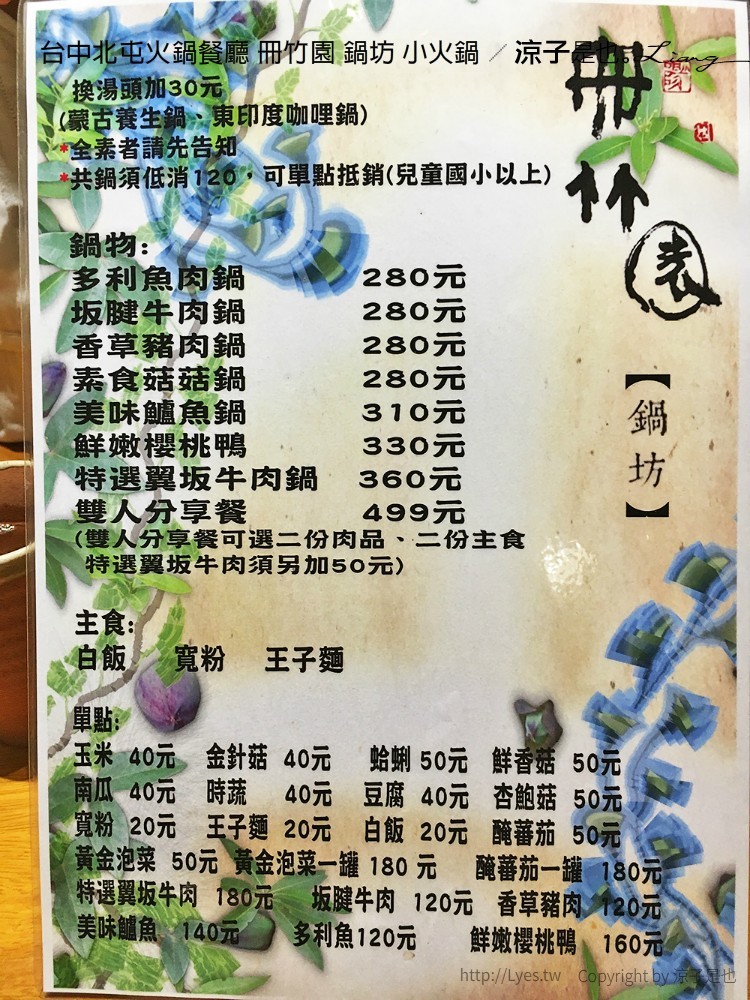 台中北屯火鍋餐廳 冊竹園 鍋坊 小火鍋 / 涼子是也。Liang
換湯頭加30元
(蒙古養生鍋、東印度咖哩鍋)
*全素者請先告知
*共鍋須低消120，可單點抵銷(兒童國小以上)
冊竹園
【鍋坊】
鍋物:
多利魚肉鍋 280元
坂腱牛肉鍋 280元
香草豬肉鍋 280元
素食菇菇鍋 280元
美味鱸魚鍋 310元
鮮嫩櫻桃鴨 330元
特選翼坂牛肉鍋 360元
雙人分享餐 499元
(雙人分享餐可選二份肉品、二份主食
特選翼坂牛肉須另加50元)
主食:
白飯 寬粉 王子麵
單點:
玉米 40元 金針菇 40元 蛤蜊 50元 鮮香菇 50元
南瓜 40元 時蔬 40元 豆腐 40元 杏鮑菇 50元
寬粉 20元 王子麵 20元 白飯 20元 醃蕃茄 50元
黃金泡菜 50元 黃金泡菜一罐 180 元 醃蕃茄一罐 180元
特選翼坂牛肉 180元 坂腱牛肉 120元 香草豬肉 120元
美味鱸魚 140元 多利魚120元 鮮嫩櫻桃鴨 160元
http://Lyes.tw Copyright by 涼子是也